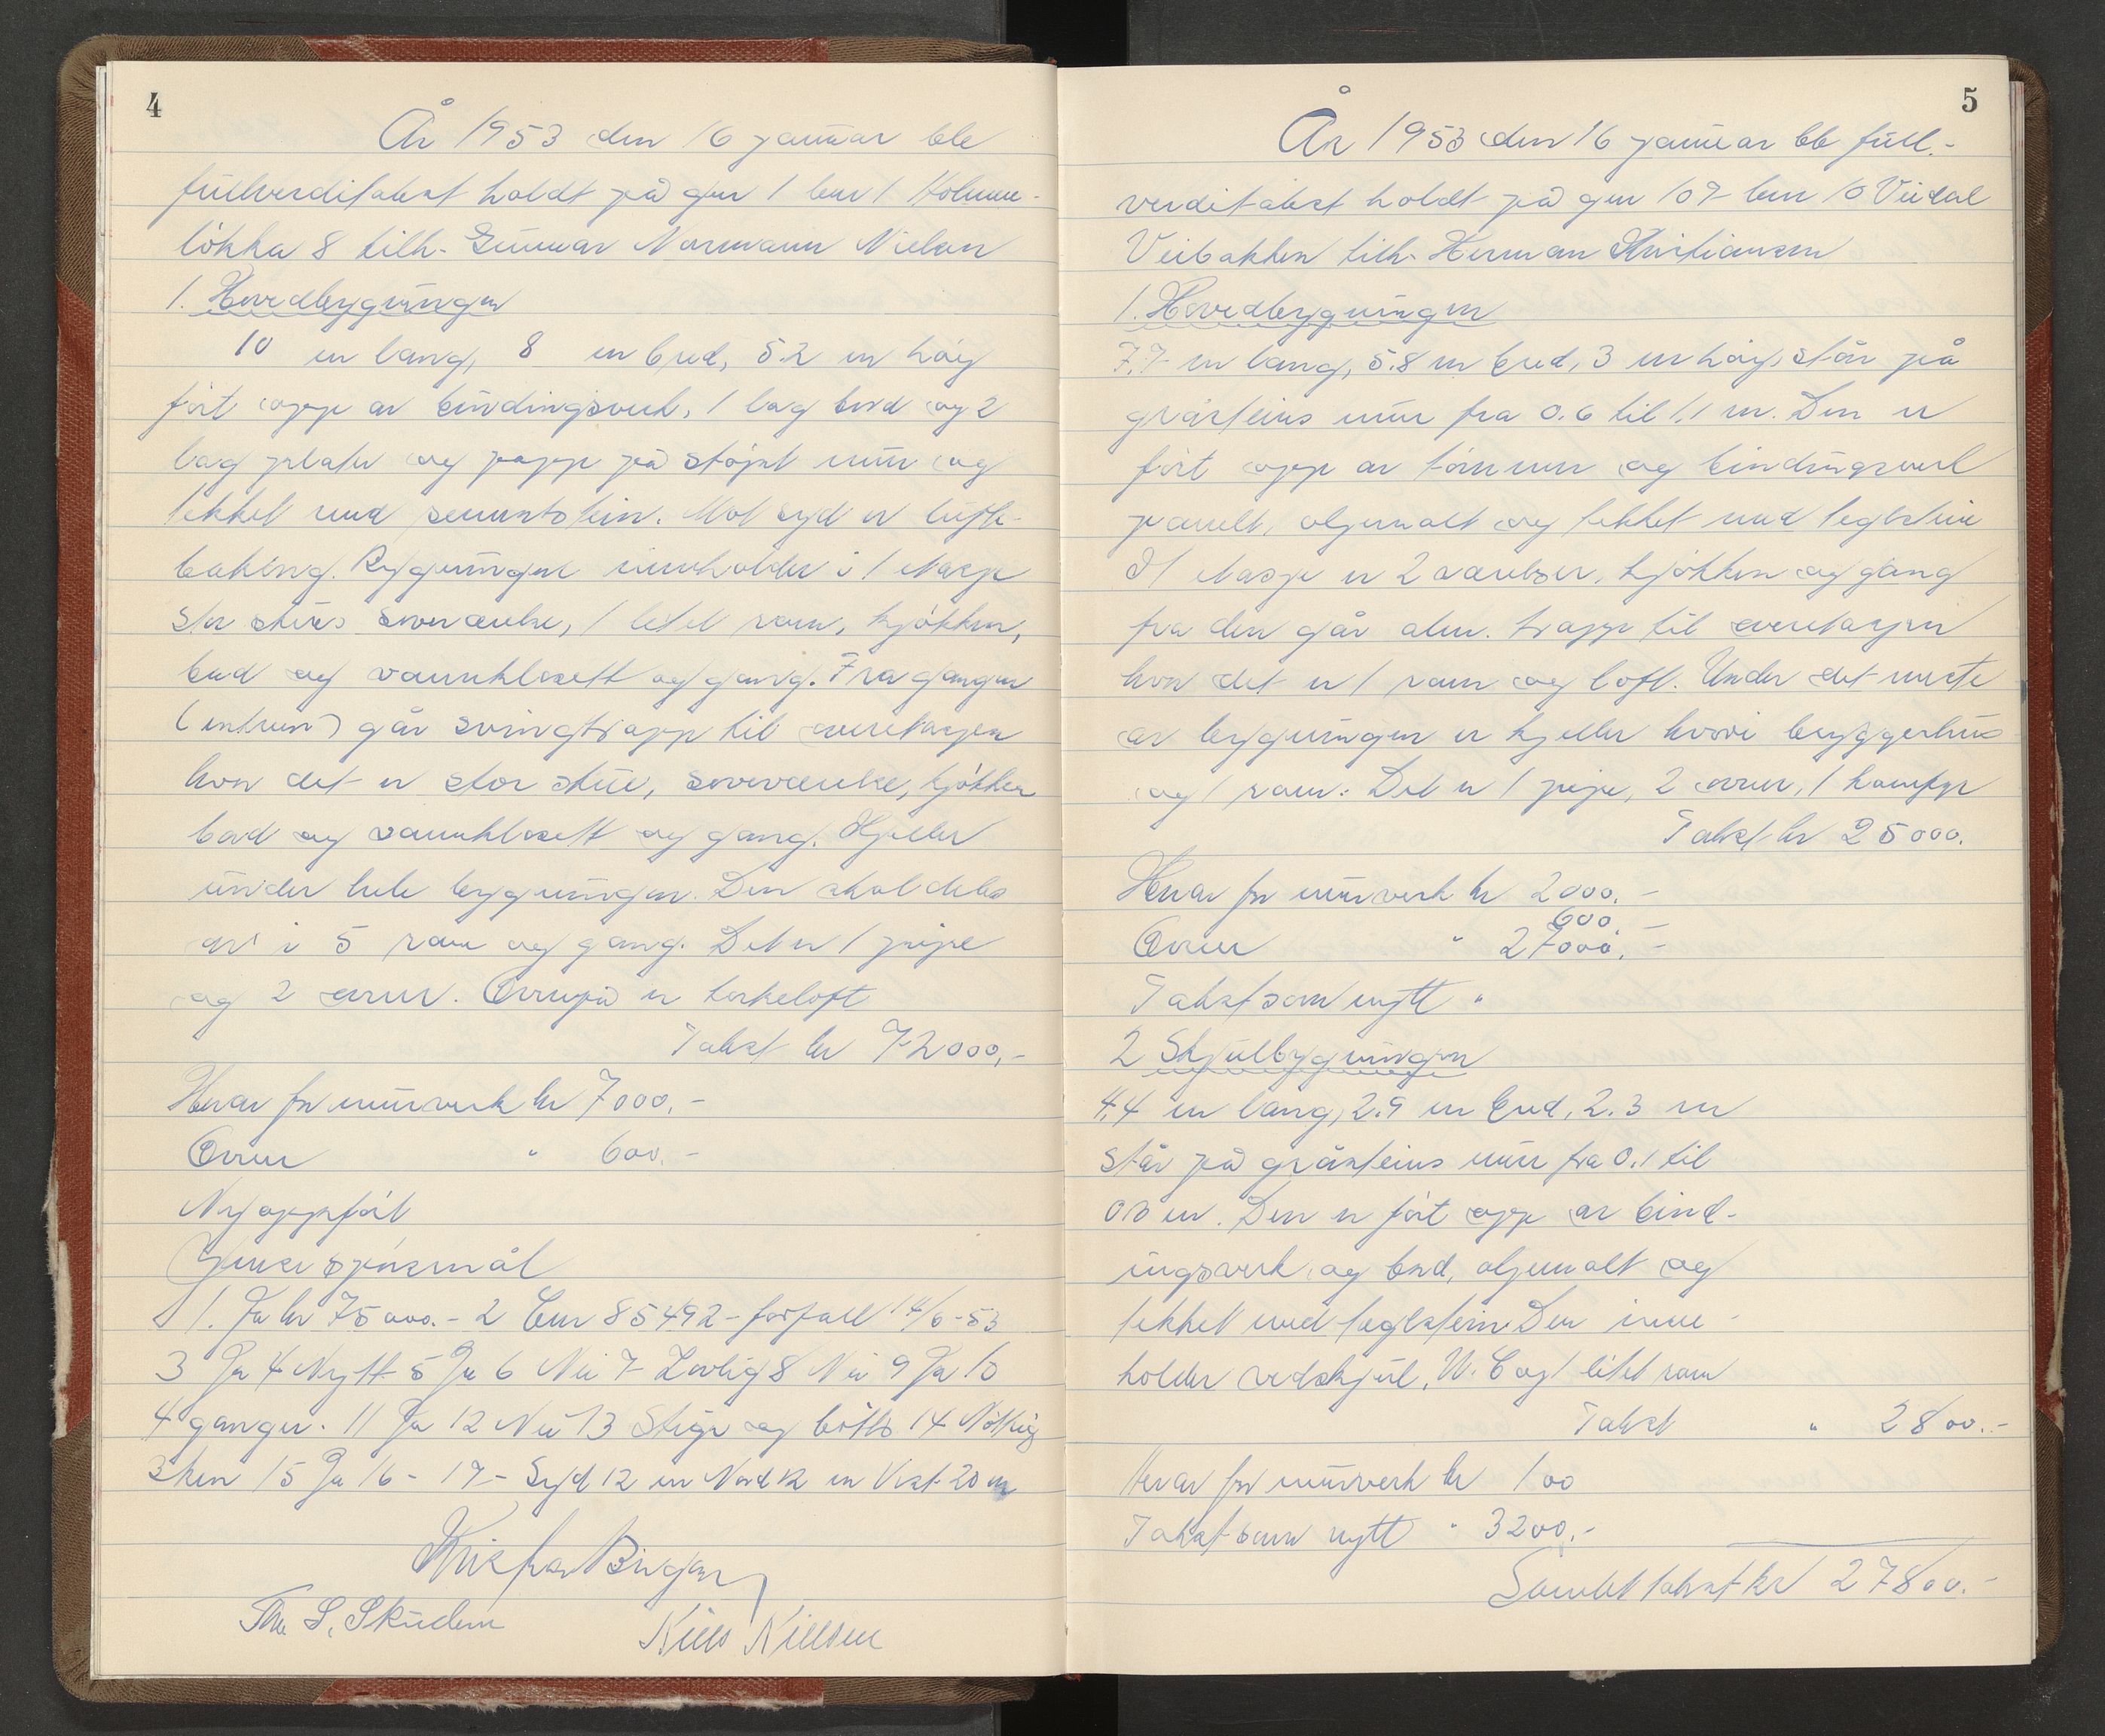 4
År 1953 den 16 januar ble
fullverditakst holdt på gnr 1 bnr 1 Holume-
løkka 8 tilh. Gunnar Normann Nielsen
1. Hovedbygningen
10 m lang, 8 m bred, 5.2 m høg
ført opp av bindingsverk, 1 lag bord og 2
lag plater og papp på støpt mur og
tekket med sementstein. Mot syd er
Bygningen inneholder i 1 etasje
stor stue soveværelse, 1 litet rom, kjøkken,
bad og vannklosett og gang. Fra gangen
(entreen) går svingtrapp til overetasjen
hvor det er stor stue, soveværelse, kjøkken
bad og vannklosett og gang. Kjeller
under hele bygningen. Den skal deles
av i 5 rom og gang. Det er 1 pipe
og 2 ovner. Ovenpå er tørkeloft
Takst kr 72000,-
Herav for murverk kr 7000.-
Ovner " 600.-
Ny oppført
spørsmål
1. Ja kr 75000.- 2 Enr 85492 - forfall 14/6-53
3 Ja 4 Nytt 5 Ja 6 Nei 7 Lovlig 8 Nei 9 Ja 10
4 ganger. 11 Ja 12 Nei 13 Stige og bøtte 14
15 Ja 16 - 17 - Syd 12 m Nord 12 m Vest 20 m
Birger
S. Skuden
Niels Nielsen
5
År 1953 den 16 januar ble full-
verditakst holdt på gnr 107 bnr 10 Veidal
Veibakken tilh. Herman Kristiansen
1. Hovedbygningen
7.7 m lang, 5.8 m bred, 3 m høg, står på
gråsteins mur fra 0.6 til 1.1 m. Den er
ført opp av tømmer og bindingsverk
panelt, oljemalt og tekket med teglstein
I 1 etasje er 2 værelser, kjøkken og gang
fra den går alm. trapp til overetasjen
hvor det er 1 rom og loft. Under det meste
av bygningen er kjeller hvori bryggerhus
og 1 rom. Det er 1 pipe, 2 ovner, 1 komfyr
Takst kr 25000.
Herav for murverk kr 2000.-
600.-
Ovner " 27000.-
Takst som nytt "
2 Skjulbygningen
4.4 m lang, 2.9 m bred, 2.3 m
står på gråsteins mur fra 0.1 til
m. Den er ført opp av bind-
ingsverk og bord, oljemalt og
tekket med teglstein Den inne-
holder vedskjul, W.C og 1 litet rom
Takst " 2800.-
Herav for murverk kr 100
Takst som nytt " 3200.-
Samlet takst kr 27800.-